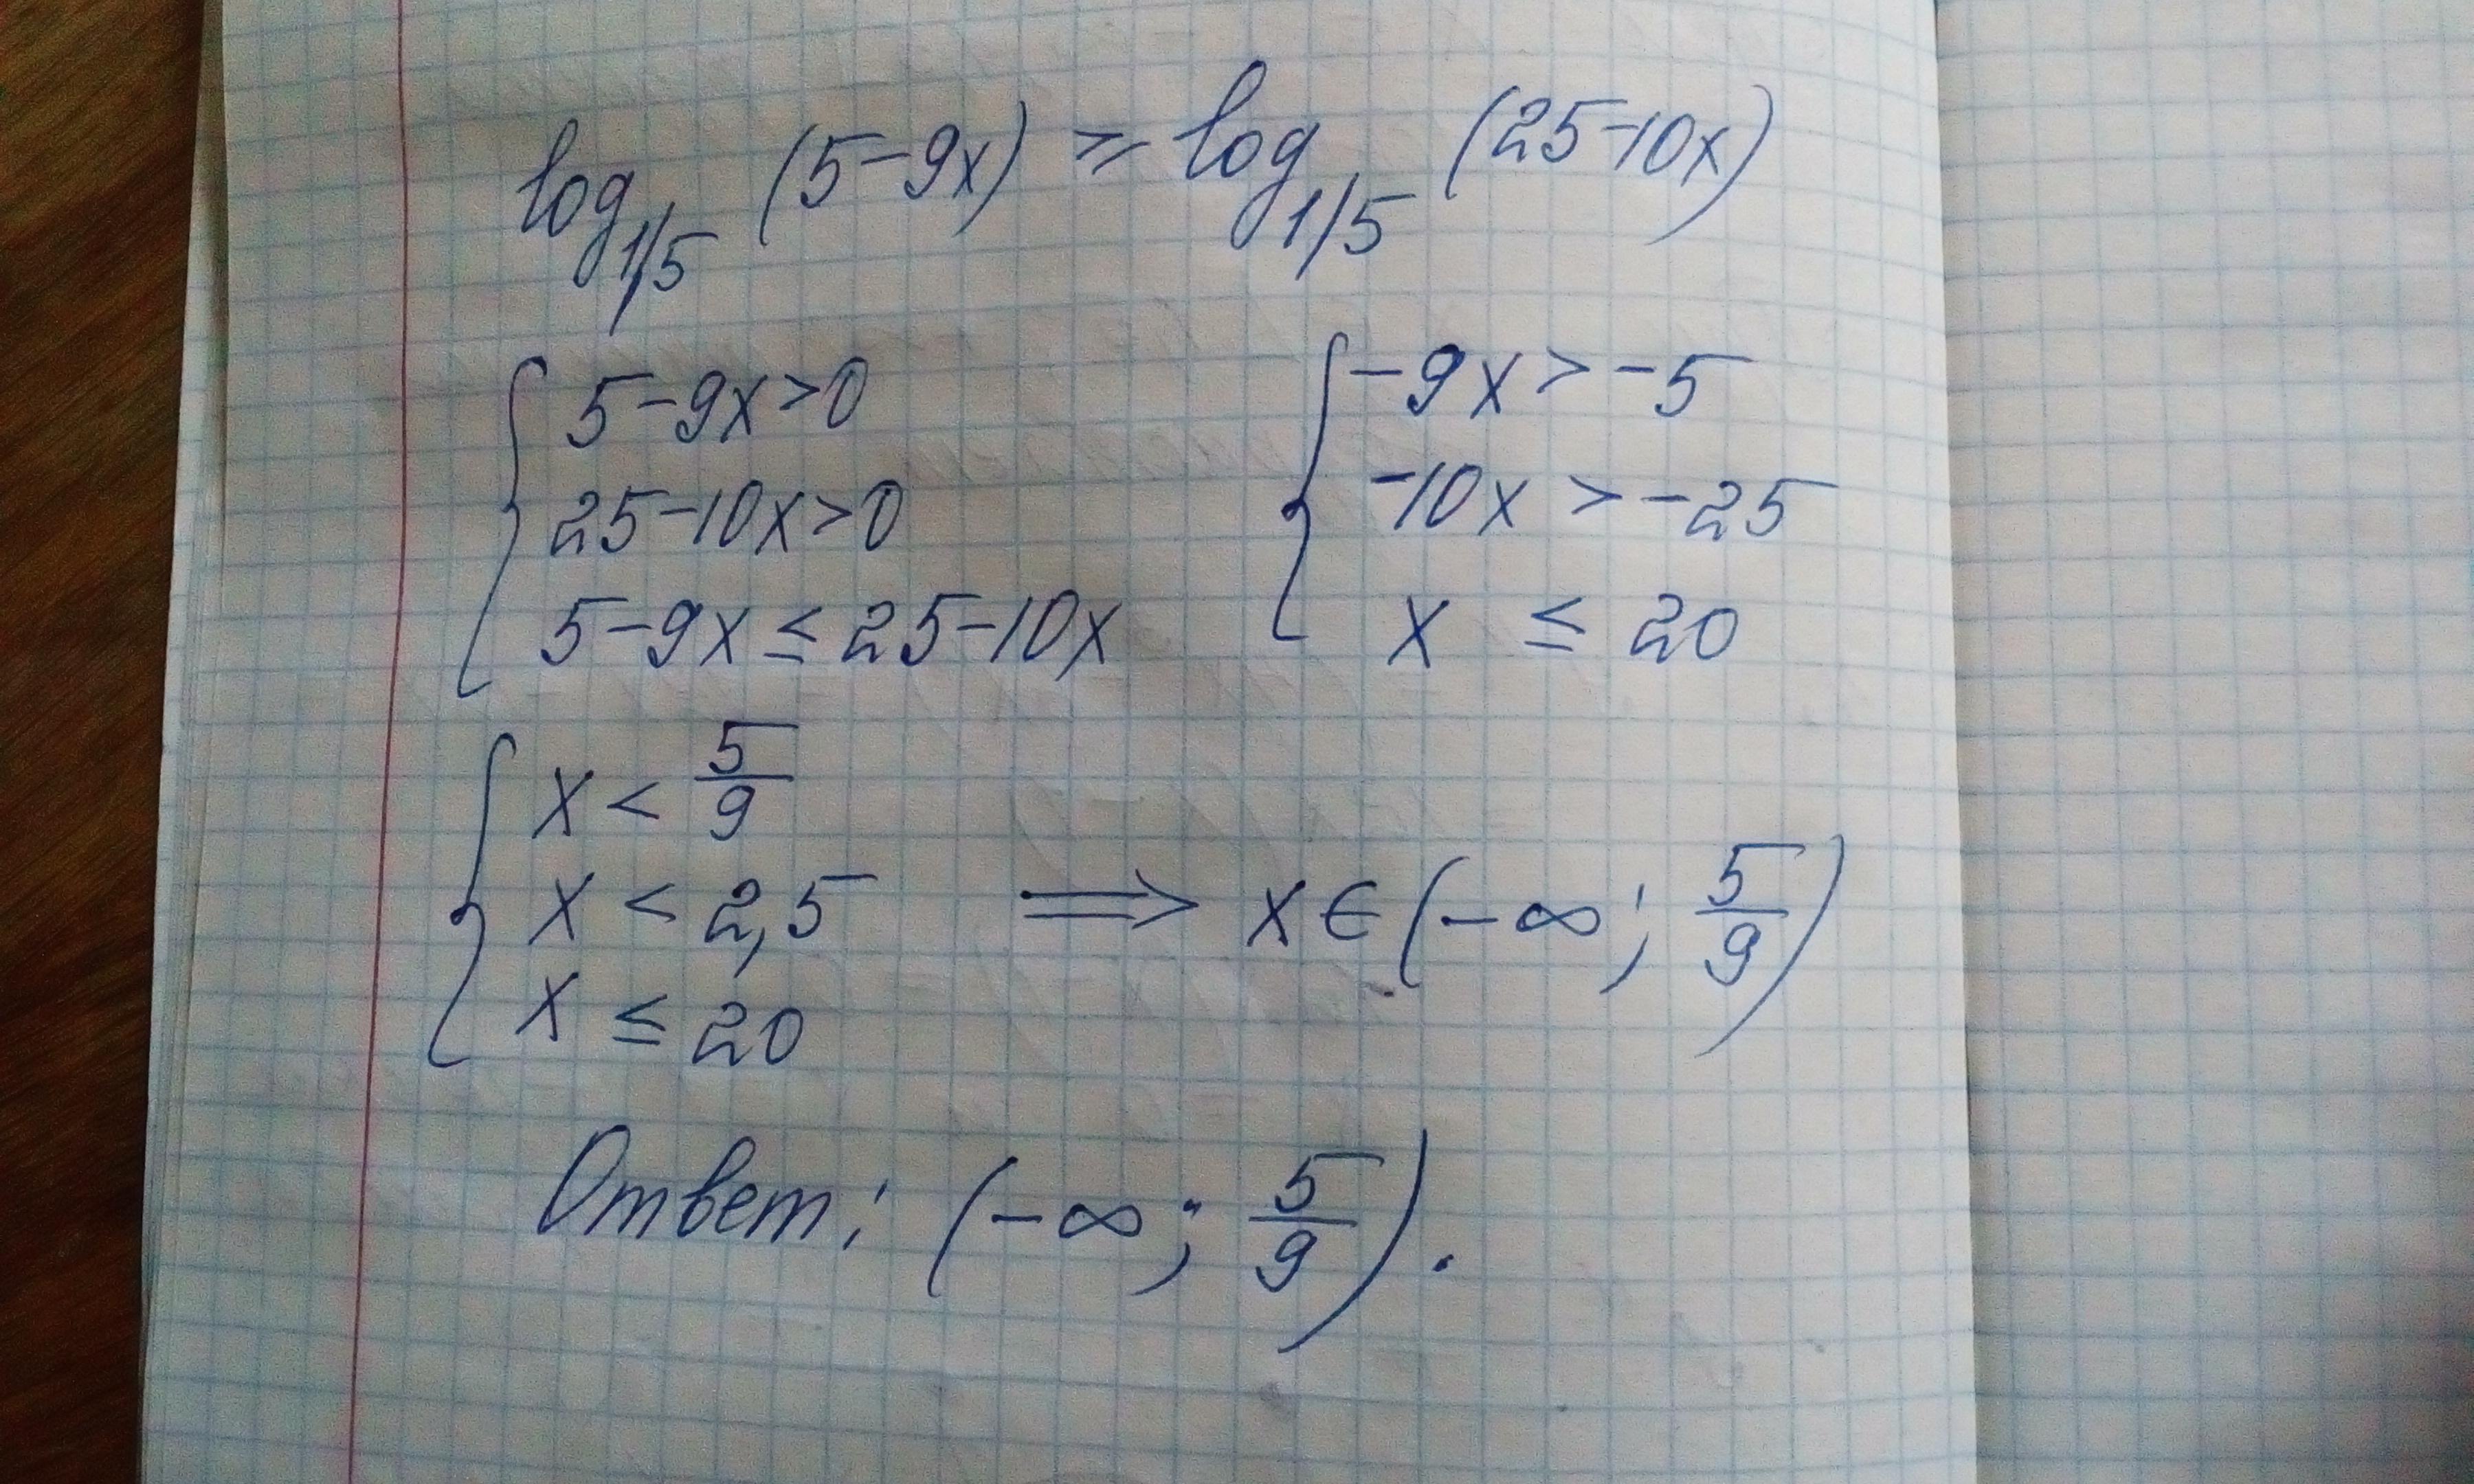 log_{1/5} (5-9x) ≥ log_{1/5} (25-10x)
{ 5-9x>0
25-10x>0
5-9x ≤ 25-10x
{ -9x > -5
-10x > -25
x ≤ 20
{ x < 5/9
x < 2,5
x ≤ 20
⟹ x ∈ (-∞; 5/9)
Ответ: (-∞; 5/9).